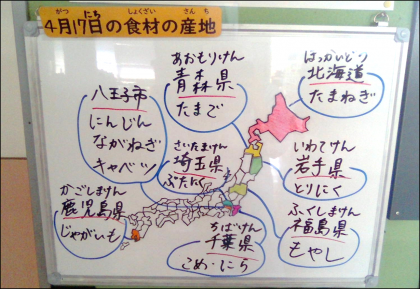 がつ にち しょくざい さんち
4月17日の食材の産地
あおもりけん
青森県
たまご
ほっかいどう
北海道
たまねぎ
八王子市
にんじん
ながねぎ
キャベツ
さいたまけん
埼玉県
ぶたにく
いわてけん
岩手県
とりにく
かごしまけん
鹿児島県
じゃがいも
ちばけん
千葉県
こめ・にら
ふくしまけん
福島県
もやし